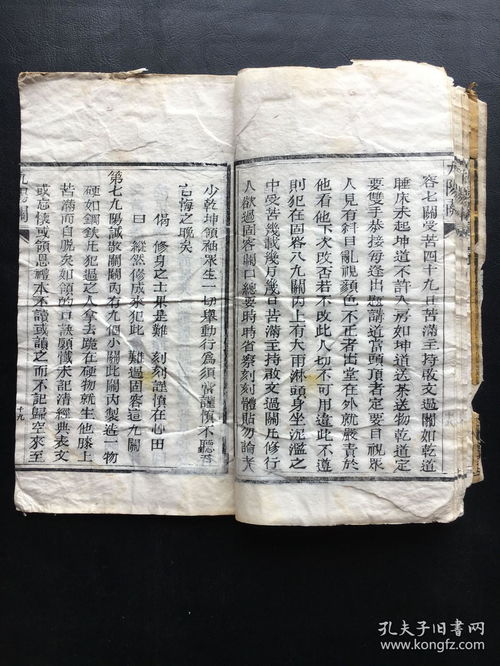 九陽關
容七關受苦四十九日苦滿主持敢文過關如乾道
睡床未起坤道不許入房如坤道送茶送物乾道定
要雙手恭接每逢出愿講道當頭頂者定要目視眾
人見有斜目亂視顏色不正者出堂在外就嚴責於
他看他下次改否若不改此人切不可用違此不遵
者死後罰在固容八九關內上有大雨淋頭身坐泥濫之
中受苦幾載幾月幾日苦滿主持敢文過關丘修行
人欲過固容關口總要時時省察刻刻體貼勿論
少乾坤領袖眾生一切舉動行為須當謹慎不聽吾
言悔之晚矣
偈 修身之士果是難 刻刻謹慎在心田
曰 縱然修成來犯此 難過固容這九關
第七九陽誠敬關關內有九個小關此關內製造一物
硬如鋼鉄丘犯過之人拿去跪在硬物就生他膝上
苦滿而自脫矣如領的口訣願懺未記清經典表文
或忘懷或領恩禮本不讀或讀之而不記歸空來至
十九
孔夫子旧書网
www.kongfz.com